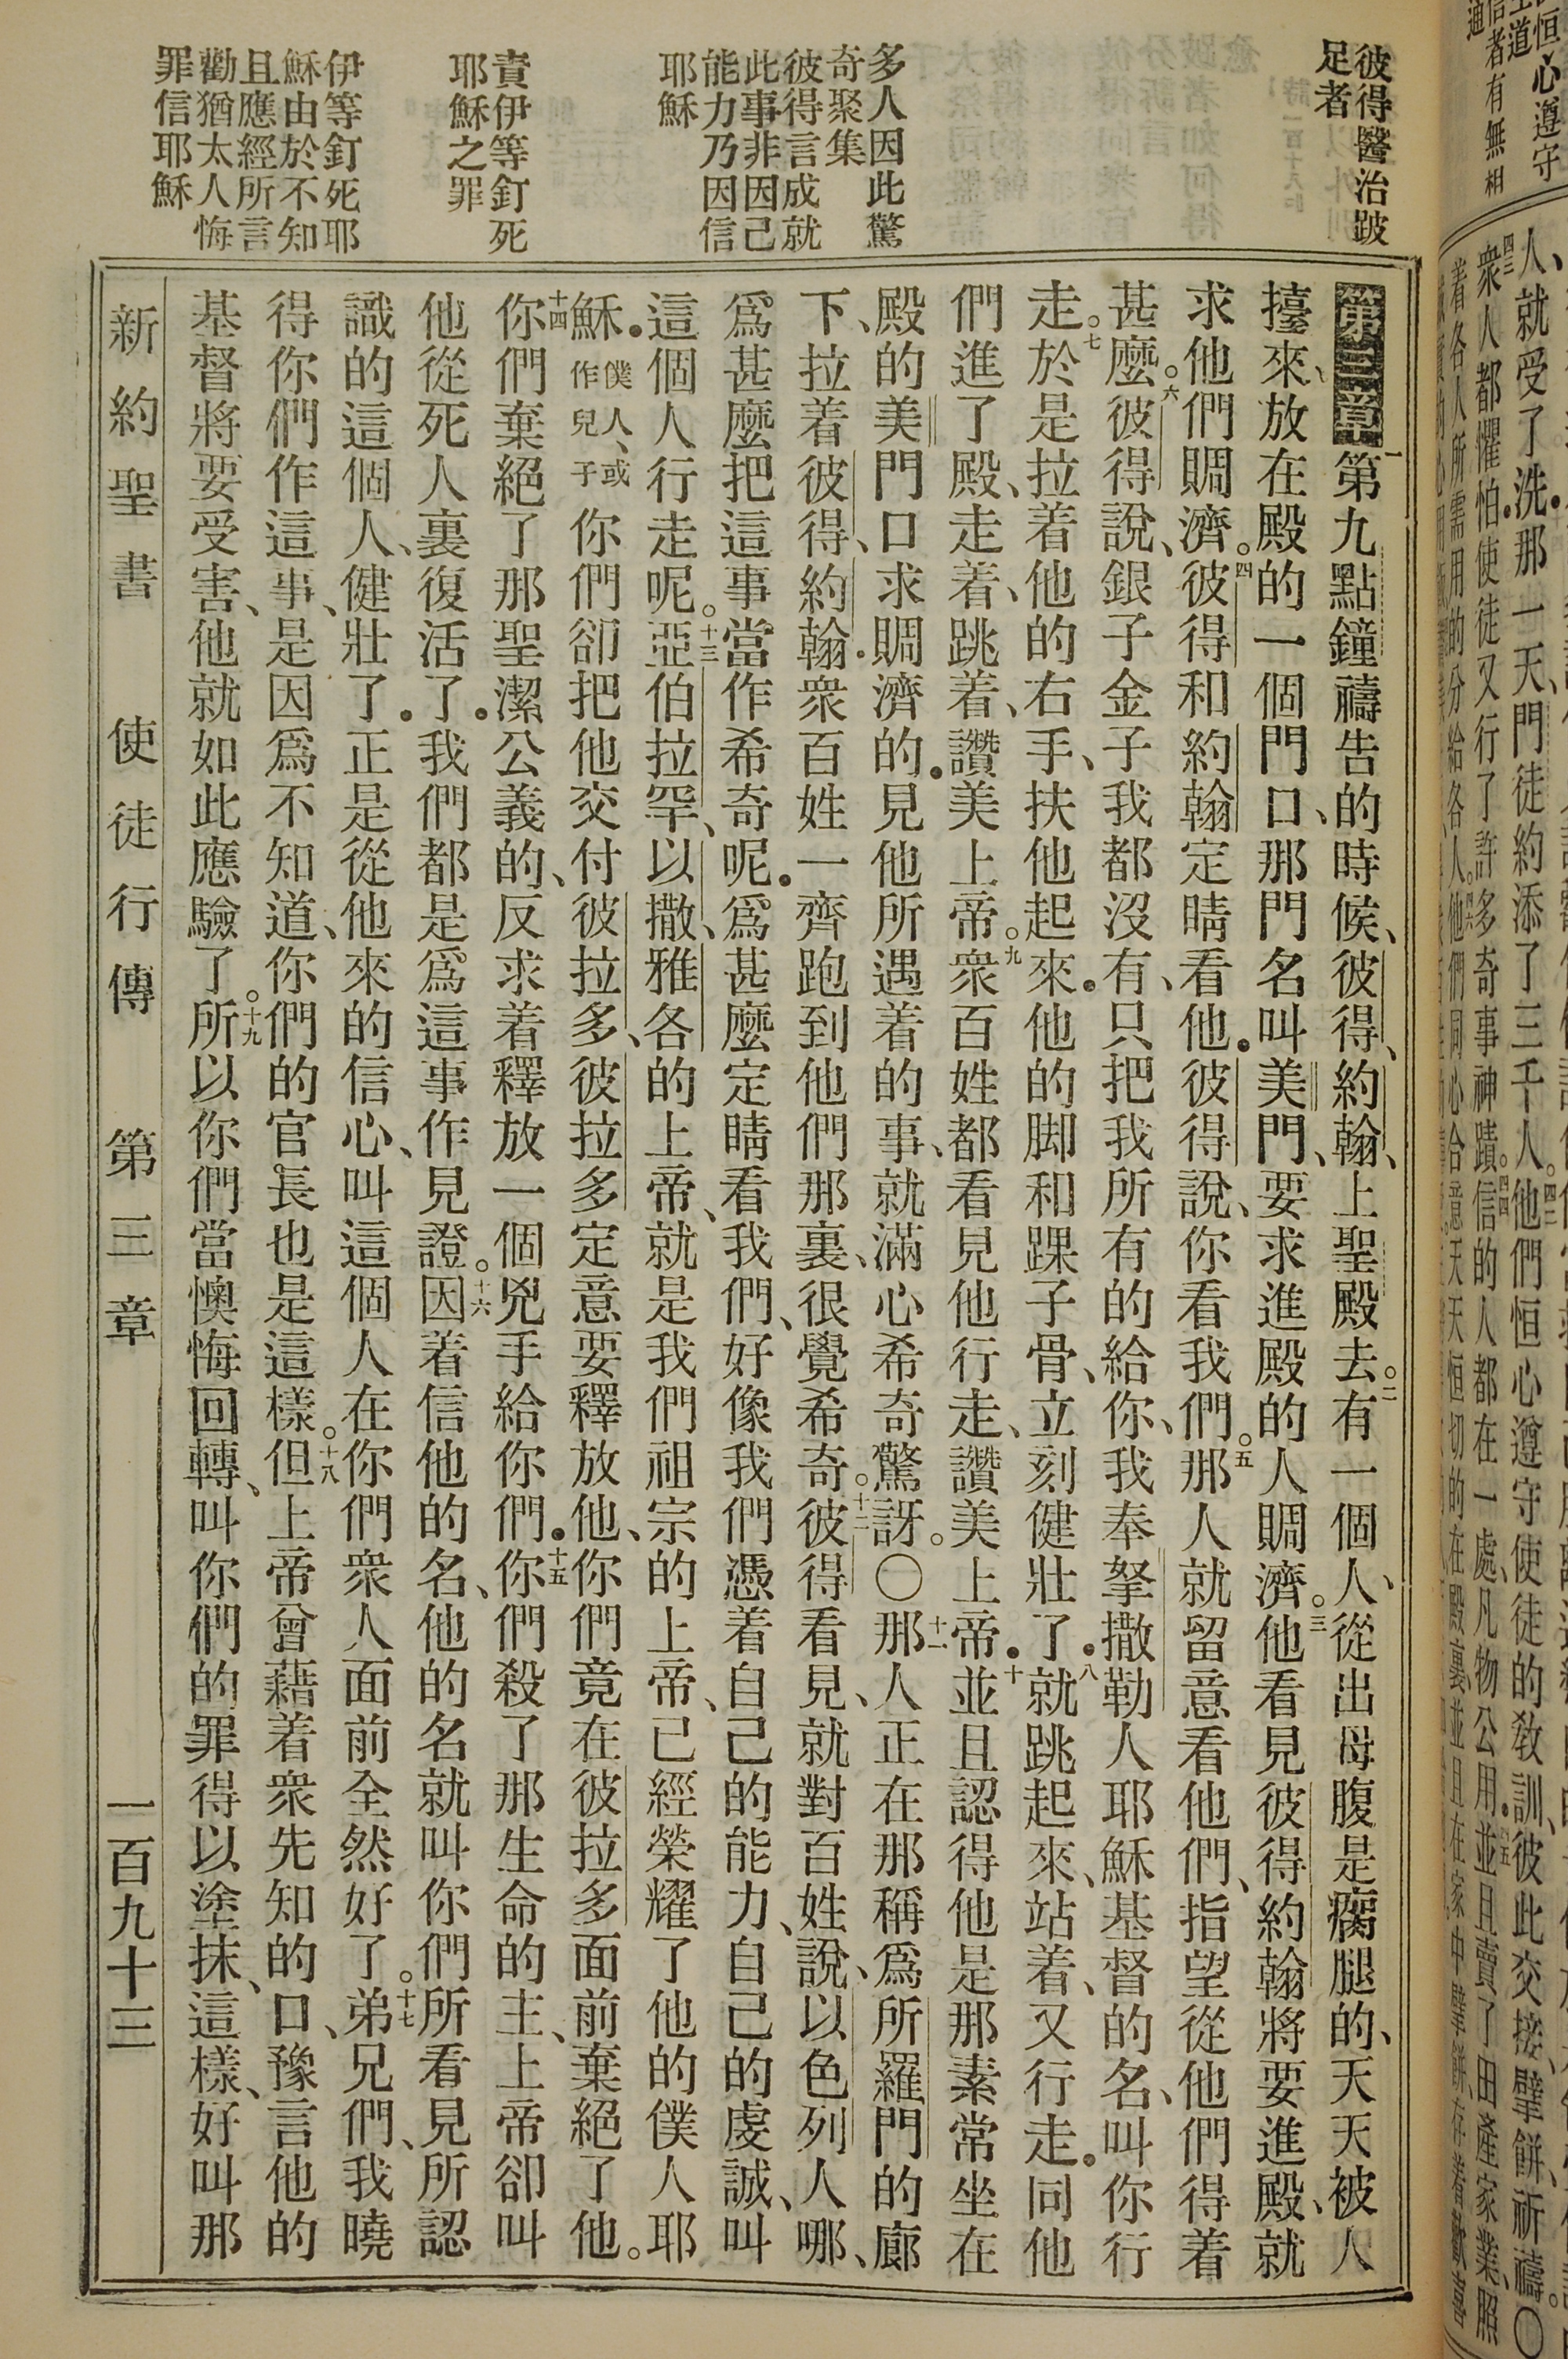 彼得醫治跛
足者
多人因此驚
奇聚集
彼得言成就
此事非因己
能力乃因信
耶穌
責伊等釘死
耶穌之罪
伊等釘死耶
穌由於不知
且應經所言
勸猶太人悔
罪信耶穌
第三章一第九點鐘禱告的時候、彼得、約翰、上聖殿去。二有一個人、從出母腹是瘸腿的、天天被人
擡來、放在殿的一個門口、那門名叫美門、要求進殿的人賙濟。三他看見彼得約翰將要進殿、就
求他們賙濟。四彼得和約翰定睛看他.彼得說、你看我們。五那人就留意看他們、指望從他們得着
甚麼。六彼得說、銀子金子我都沒有、只把我所有的給你、我奉拏撒勒人耶穌基督的名、叫你行
走。七於是拉着他的右手、扶他起來.他的脚和踝子骨、立刻健壯了.八就跳起來、站着、又行走.同他
們進了殿、走着、跳着、讚美上帝。九衆百姓都看見他行走、讚美上帝.十並且認得他是那素常坐在
殿的美門口求賙濟的.見他所遇着的事、就滿心希奇驚訝。〇十一那人正在那稱爲所羅門的廊
下、拉着彼得、約翰.衆百姓一齊跑到他們那裏、很覺希奇。十二彼得看見、就對百姓說、以色列人哪、
爲甚麼把這事當作希奇呢.爲甚麼定睛看我們、好像我們憑着自己的能力、自己的虔誠、叫
這個人行走呢。十三亞伯拉罕、以撒、雅各的上帝、就是我們祖宗的上帝、已經榮耀了他的僕人耶
穌.僕人、或作兒子你們卻把他交付彼拉多、彼拉多定意要釋放他、你們竟在彼拉多面前棄絕了他。
十四你們棄絕了那聖潔公義的、反求着釋放一個兇手給你們.十五你們殺了那生命的主、上帝卻叫
他從死人裏復活了.我們都是爲這事作見證。十六因着信他的名、他的名就叫你們所看見所認
識的這個人、健壯了.正是從他來的信心、叫這個人在你們衆人面前全然好了。十七弟兄們、我曉
得你們作這事、是因爲不知道、你們的官長也是這樣。十八但上帝曾藉着衆先知的口、豫言他的
基督將要受害、他就如此應驗了。十九所以你們當懊悔回轉、叫你們的罪得以塗抹、這樣、好叫那
新約聖書 使徒行傳 第三章 一百九十三